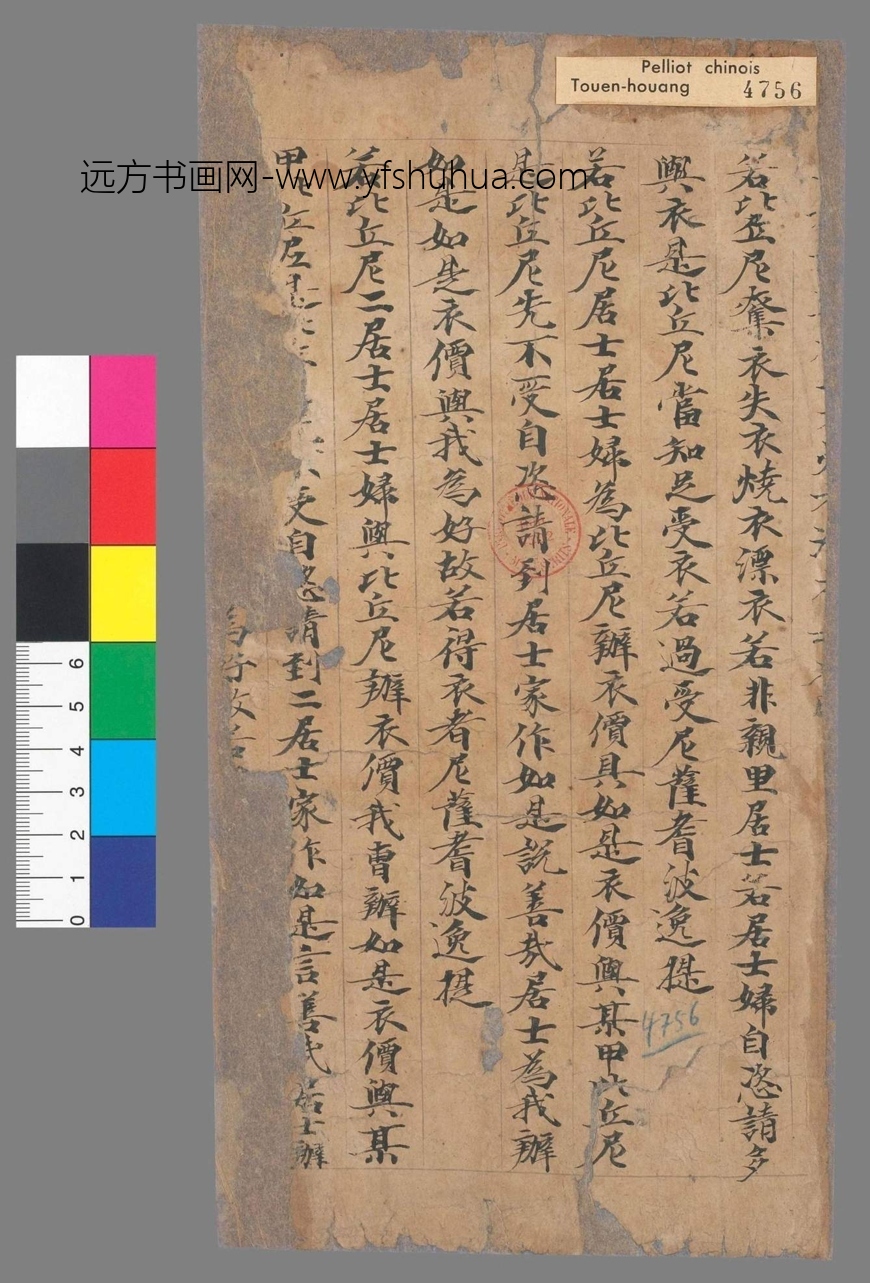 Pelliot chinois
Touen-houang 4756
远方书画网-www.yfshuhua.com
若比丘尼奪衣失衣燒衣漂衣若非親里居士若居士婦自恣請多
與衣是比丘尼當知足受衣若過受尼薩耆波逸提
若比丘尼居士居士婦為比丘尼辦衣價具如是衣價與某甲比丘尼
是比丘尼先不受自恣請到居士家作如是說善哉居士為我辦
如是如是衣價與我為好故若得衣者尼薩耆波逸提
若比丘尼二居士居士婦與比丘尼辦衣價我曹辦如是衣價與某
甲比丘尼是受自恣請到二居士家作如是言善哉居士辦
為好故若
4756
6
5
4
3
2
1
0